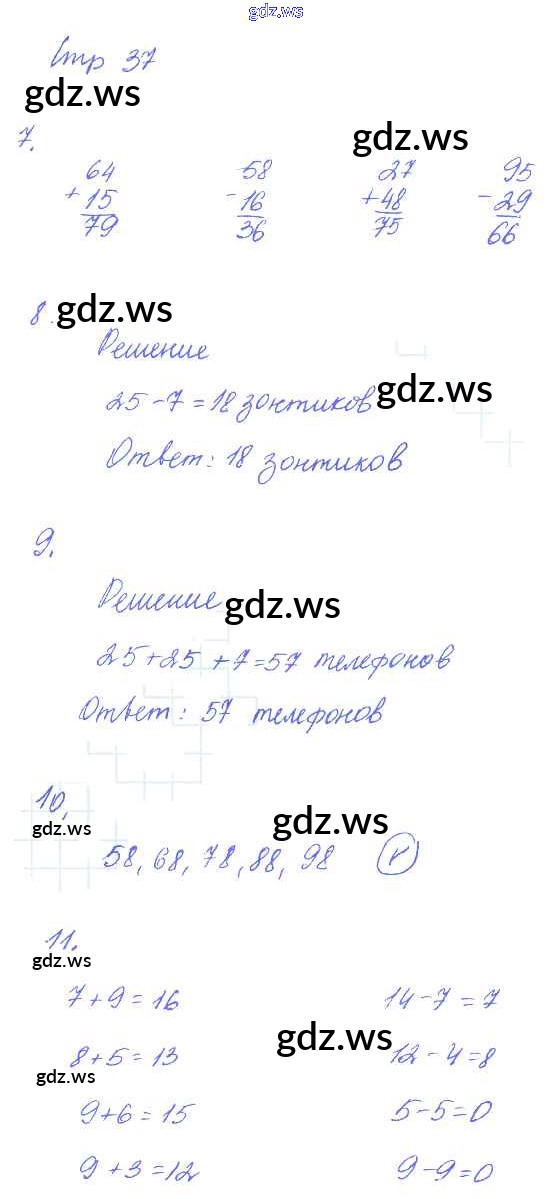 gdz.ws
Стр 37
gdz.ws
gdz.ws
7.
64 58 27 95
+ 15 - 16 + 48 - 29
79 36 75 66
8. gdz.ws
Решение
25 - 7 = 18 зонтиков gdz.ws
Ответ: 18 зонтиков
9.
Решение gdz.ws
25 + 25 + 7 = 57 телефонов
Ответ: 57 телефонов
10,
gdz.ws gdz.ws
58, 68, 78, 88, 98
11.
gdz.ws
7 + 9 = 16 14 - 7 = 7
gdz.ws
8 + 5 = 13 12 - 4 = 8
gdz.ws
9 + 6 = 15 5 - 5 = 0
9 + 3 = 12 9 - 9 = 0